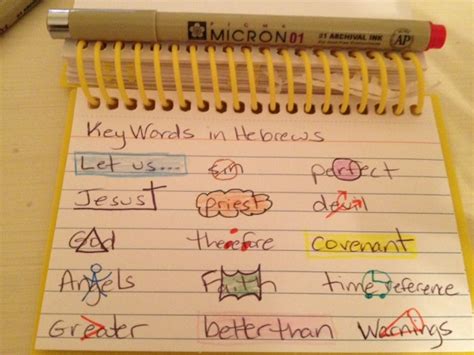 PIGMA
MICRON 01
01 ARCHIVAL INK
AP
Key Words in Hebrews
Let us... sin perfect
Jesus priest devil
God therefore covenant
Angels Faith time reference
Greater better than Warnings